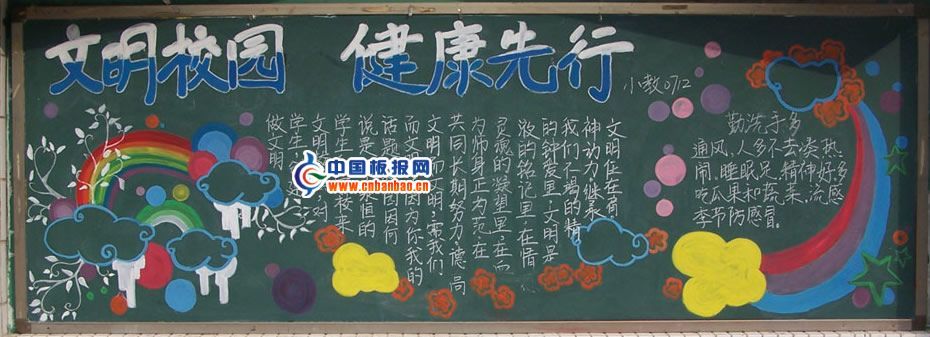 文明校园 健康先行
小教0712
文明住在有
神动力继承
我们不竭的精
的钟爱里,文明是
液的铭记里,在情
灵魂的凝望里,在血
为师身正为范,在
共同长期努力,德高
文明而文明,需我们
而文明因为你我的
话题,因因何
说是永恒的
学生
文明
学生
做文明
中国板报网
www.cnbanbao.cn
勤洗手多
通风,人多不去凑热
闹,睡眠足,精神好,多
吃瓜果和蔬菜,流感
季节防感冒。